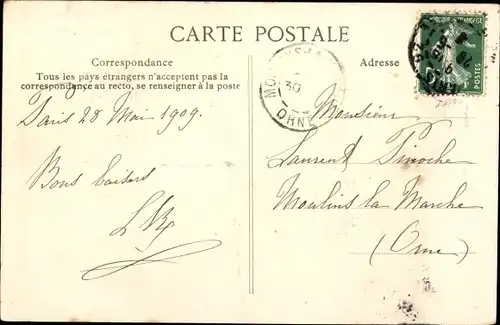 CARTE POSTALE
Correspondance
Tous les pays étrangers n'acceptent pas la
correspondance au recto, se renseigner à la poste
Adresse
POSTES
30
ORNE
Paris 28 Mai 1909.
Bons baisers
Monsieur
Laurent Pinoche
Moulins la Marche
(Orne)